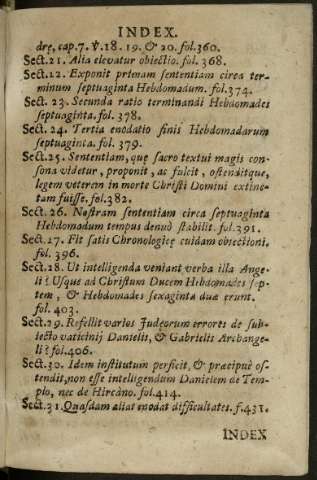 INDEX.
drę, cap.7. ℣.18. 19. & 20. fol.360.
Sect.21. Alia elevatur obiectio. fol. 368.
Sect.12. Exponit primam sententiam circa ter-
minum septuaginta Hebdomadum. fol.374.
Sect. 23. Secunda ratio terminandi Hebdomades
septuaginta. fol. 378.
Sect. 24. Tertia enodatio finis Hebdomadarum
septuaginta. fol. 379.
Sect.25. Sententiam, quę sacro textui magis con-
sona videtur, proponit, ac fulcit, ostenditque,
legem veterem in morte Christi Domini extinc-
tam fuisse. fol.382.
Sect. 26. Nostram sententiam circa septuaginta
Hebdomadum tempus denuò stabilit. fol.391.
Sect.27. Fit satis Chronologicę cuidam obiectioni.
fol. 396.
Sect.28. Ut intelligenda veniant verba illa Ange-
li: Usque ad Christum Ducem Hebdomades sep-
tem, & Hebdomades sexaginta duæ erunt.
fol. 403.
Sect.29. Refellit varios Judæorum errores de sub-
iecto vaticinij Danielis, & Gabrielis Archange-
li: fol.406.
Sect.30. Idem institutum perficit, & præcipuè os-
tendit, non esse intelligendum Danielem de Tem-
plo, nec de Hircáno. fol.414.
Sect.31. Quasdam alias enodat difficultates. f.431.
INDEX